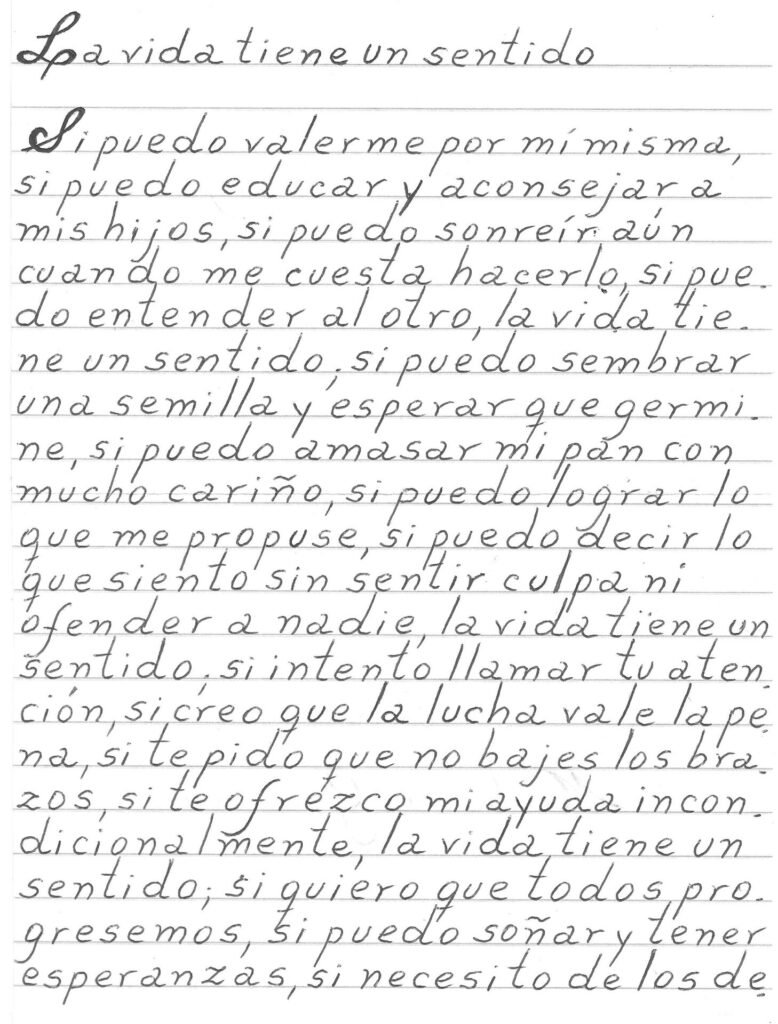 La vida tiene un sentido
Si puedo valerme por mí misma,
si puedo educar y aconsejar a
mis hijos, si puedo sonreír aún
cuando me cuesta hacerlo, si pue-
do entender al otro, la vida tie-
ne un sentido; si puedo sembrar
una semilla y esperar que germi-
ne, si puedo amasar mi pan con
mucho cariño, si puedo lograr lo
que me propuse, si puedo decir lo
que siento sin sentir culpa ni
ofender a nadie, la vida tiene un
sentido; si intento llamar tu aten-
ción, si creo que la lucha vale la pe-
na, si te pido que no bajes los bra-
zos, si te ofrezco mi ayuda incon-
dicionalmente, la vida tiene un
sentido; si quiero que todos pro-
gresemos, si puedo soñar y tener
esperanzas, si necesito de los de-